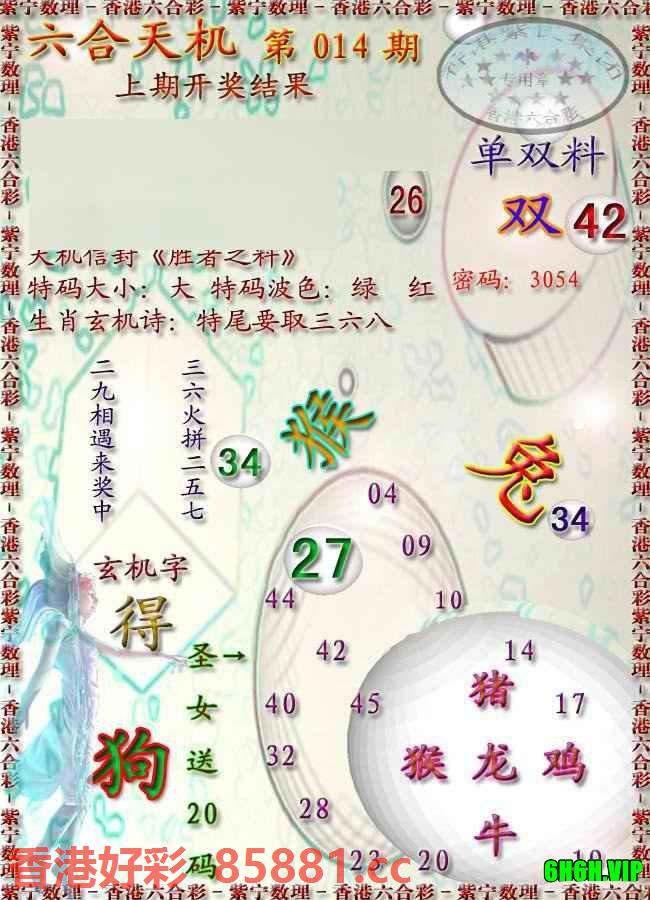 紫宁数理－香港六合彩－紫宁数理－香港六合彩－紫宁数理－香港六合彩
六合天机 第 014 期
上期开奖结果
专用章
香港六合彩
单双料
双 42
26
天机信封《胜者之料》
特码大小：大 特码波色：绿 红
密码：3054
生肖玄机诗：特尾要取三六八
三六火拼二五七
二九相遇来奖中
34
猴
兔
34
04
27
09
44
10
玄机字
得
圣→
女
送
20
码
42
14
猪
40
45
17
狗
32
猴 龙 鸡
28
牛
23
20
19
香港好彩 85881.cc
6H6H.VIP
紫宁数理－香港六合彩－紫宁数理－香港六合彩－紫宁数理－香港六合彩